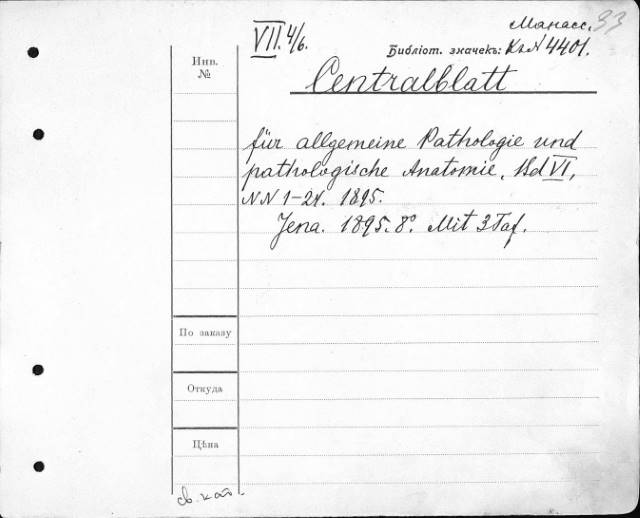 Манасс. 93
VII. 4/6.
Библіот. значекъ: К. N 4401.
Инв.
№
Centralblatt
für allgemeine Pathologie und
pathologische Anatomie, Bd VI,
NN 1-24. 1895.
Jena. 1895. 8° Mit 3 Taf.
По заказу
Откуда
Цѣна
св. кат.